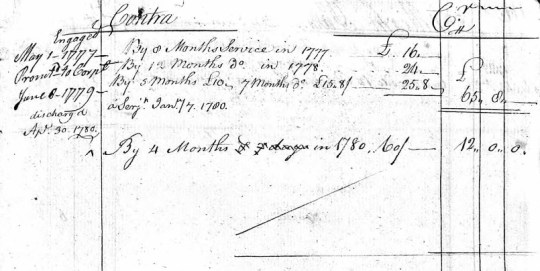 Contra
Cr
Engaged
May 1 - 1777
Promotd. to Corpl.
June 8 - 1779
dischargd
Apl. 30. 1780.
By 8 Months Service in 1777 £ 16
By 12 Months do. in 1778 24
By 5 Months £10.. 7 Months do. £15.8/ 25..8
£ 65.. 8
a Serjt. Jany. 17. 1780.
By 4 Months in 1780. 60/ 12.. 0.. 0.